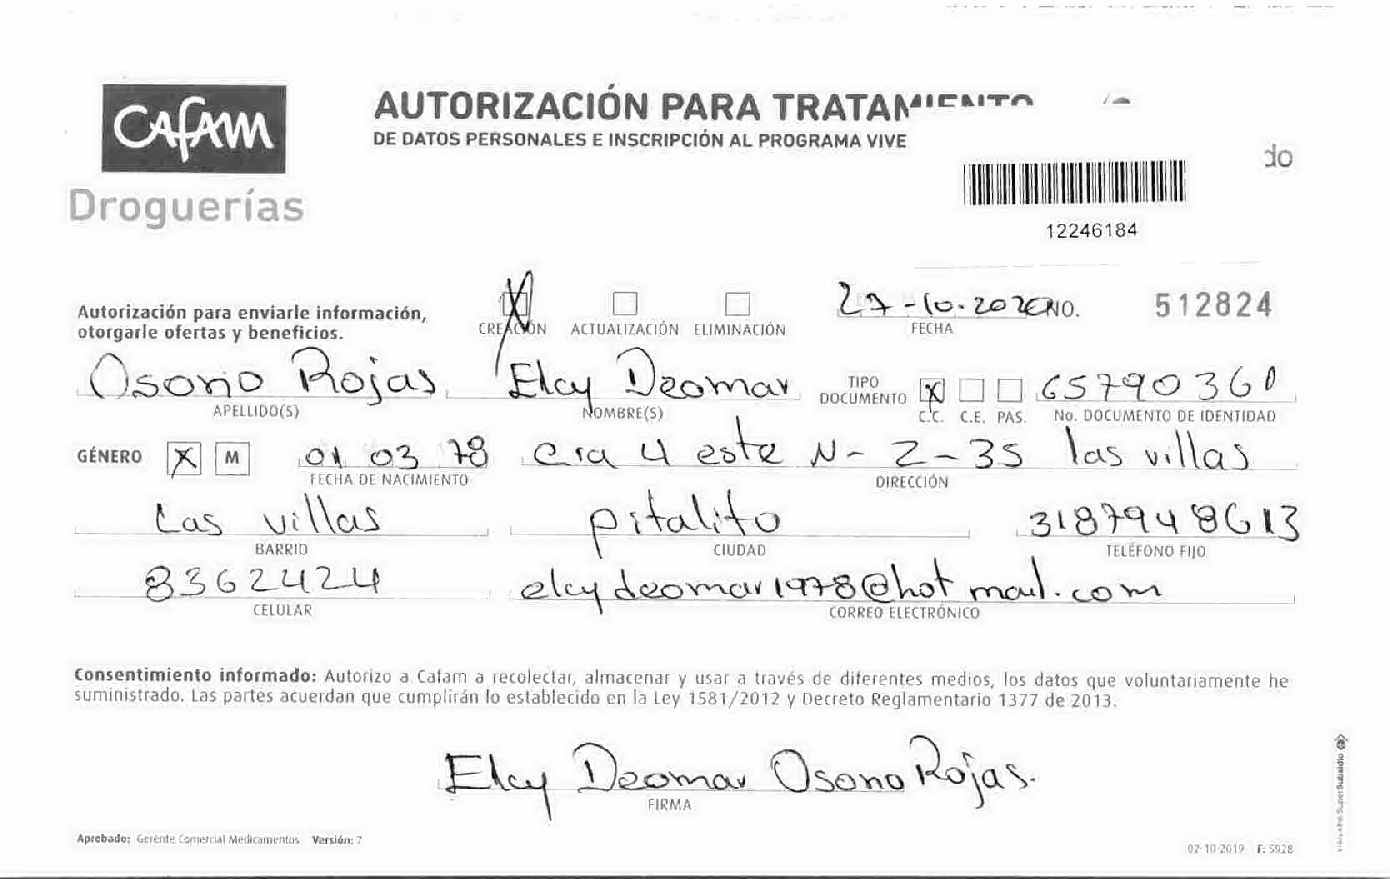 CAFAM
Droguerías
AUTORIZACIÓN PARA TRATAMIENTO
DE DATOS PERSONALES E INSCRIPCIÓN AL PROGRAMA VIVE
do
12246184
Autorización para enviarle información,
otorgarle ofertas y beneficios.
X CREACIÓN ACTUALIZACIÓN ELIMINACIÓN
27-10-2020 FECHA
NO. 512824
Osorio Rojas Elcy Deomar TIPO DOCUMENTO X 65790360
APELLIDO(S) NOMBRE(S) C.C. C.E. PAS. No. DOCUMENTO DE IDENTIDAD
GÉNERO X M 01 03 78 Cra 4 este N- 2-35 las villas
FECHA DE NACIMIENTO DIRECCIÓN
Las villas pitalito 3187948613
BARRIO CIUDAD TELÉFONO FIJO
8362424 elcydeomar1978@hotmail.com
CELULAR CORREO ELECTRÓNICO
Consentimiento informado: Autorizo a Cafam a recolectar, almacenar y usar a través de diferentes medios, los datos que voluntariamente he
suministrado. Las partes acuerdan que cumplirán lo establecido en la Ley 1581/2012 y Decreto Reglamentario 1377 de 2013.
Elcy Deomar Osorio Rojas.
FIRMA
Aprobado: Gerente Comercial Medicamentos Versión: 7
02-10-2019 F: 5928
SuperSubsidio